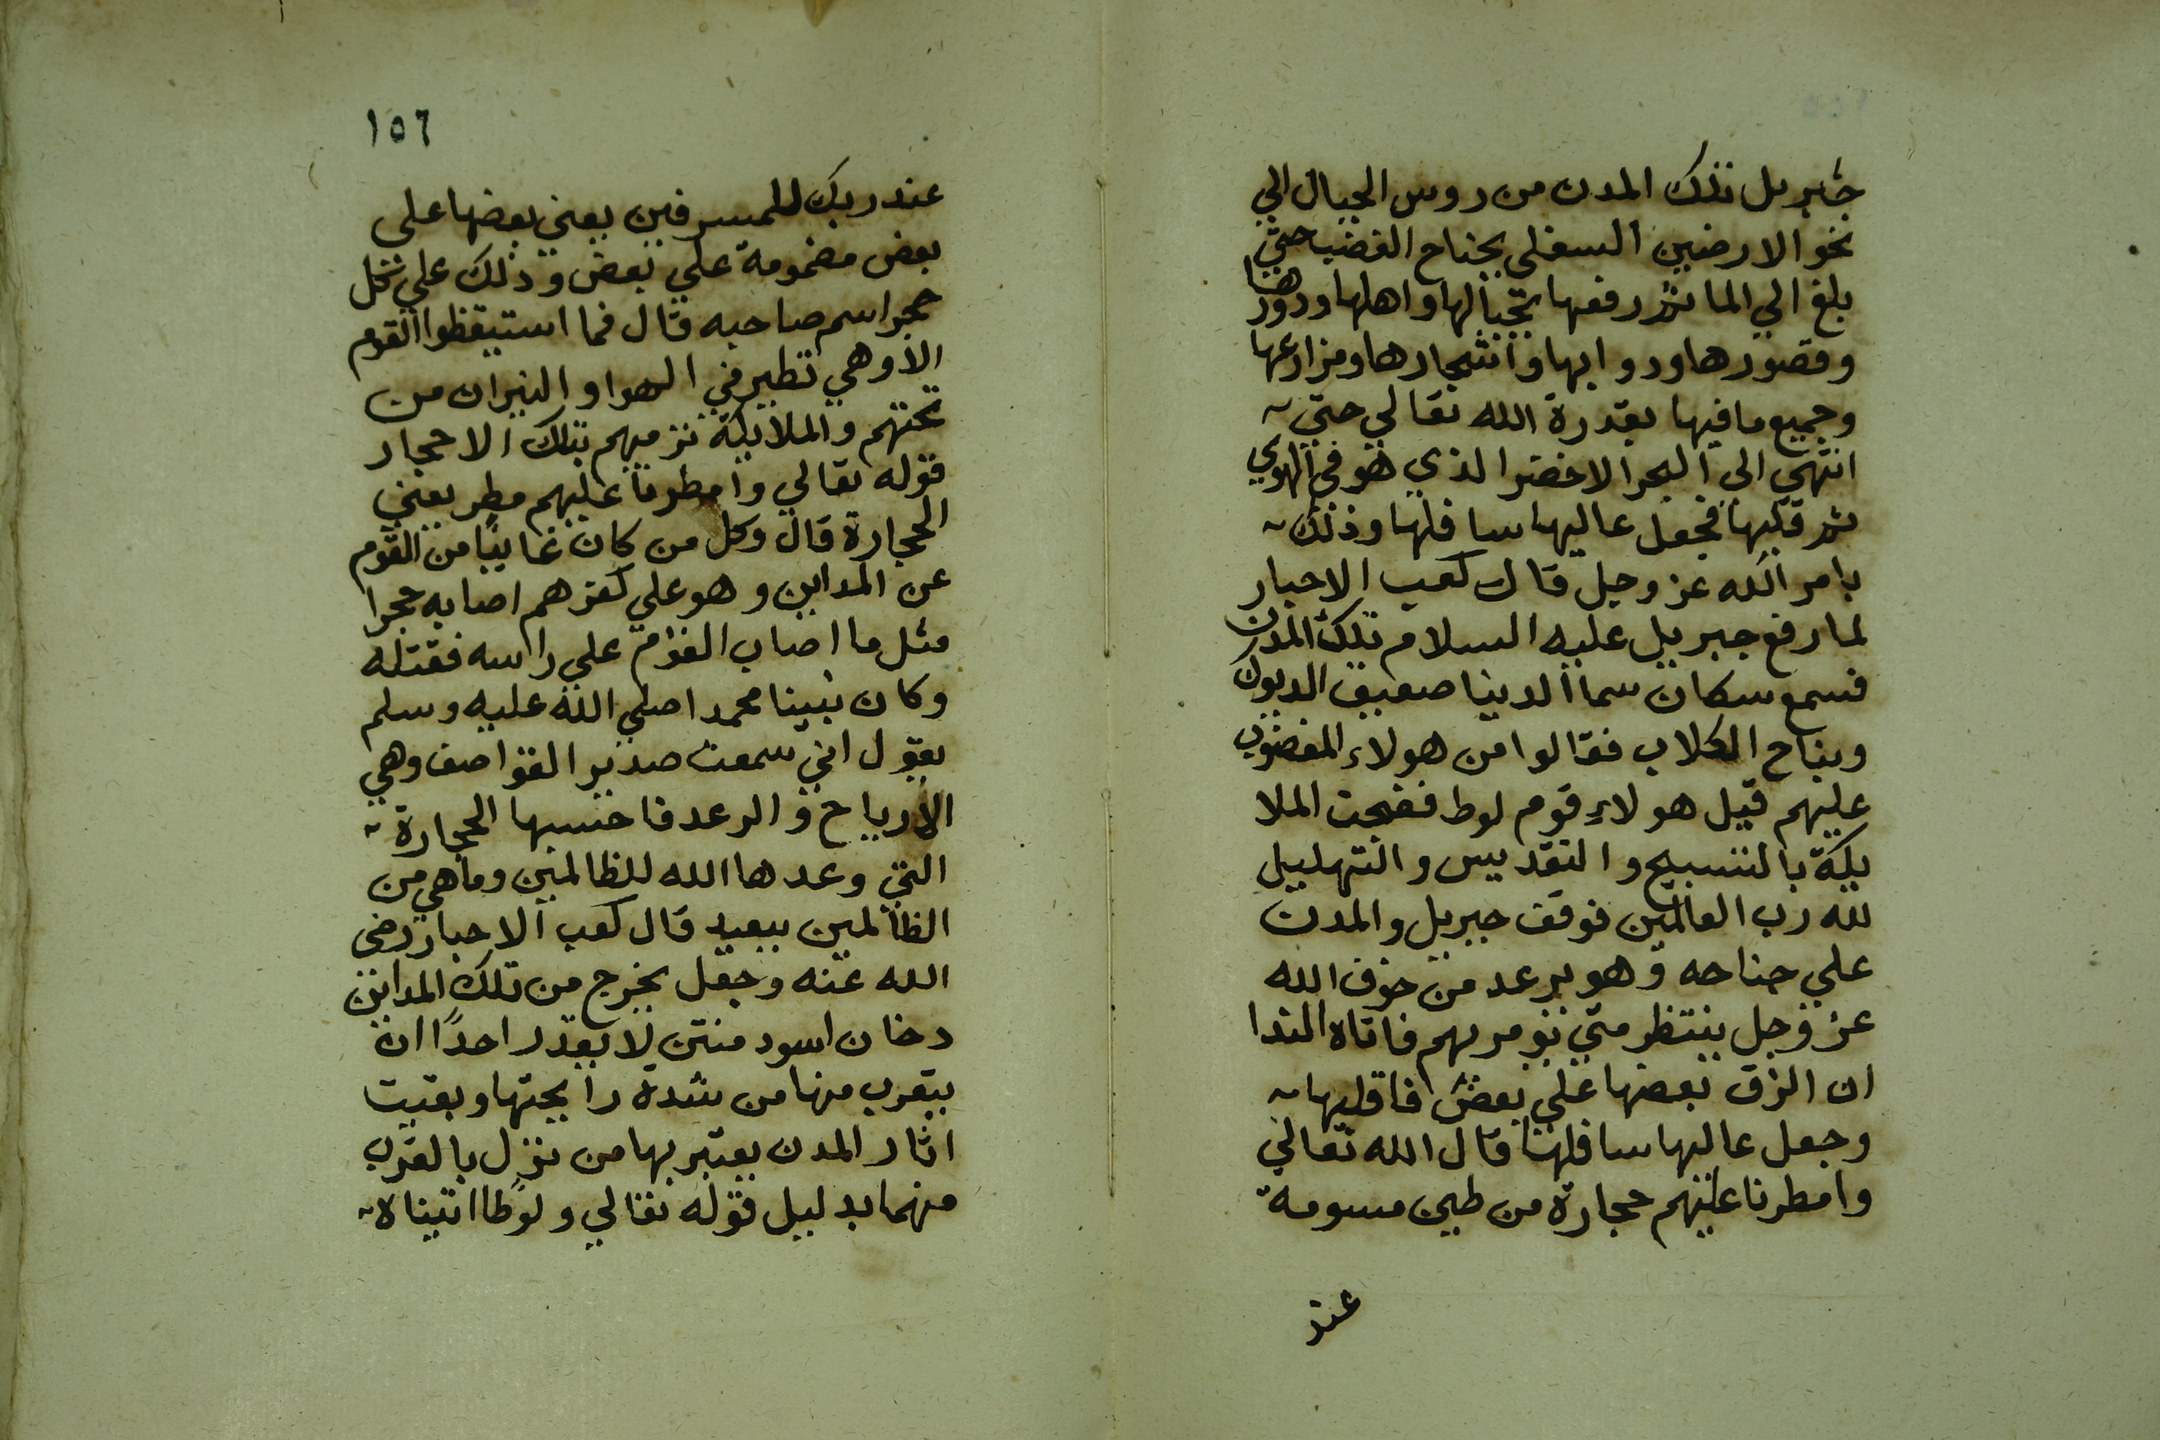 جبريل تلك المدن من روس الجبال الي
نحو الارضين السفلي بجناح الغضب حتي
بلغ الي الما ثم رفعها بجبالها واهلها ودورها
وقصورها ودوابها واشجارها ومزارعها
وجميع ما فيها بقدرة الله تعالي حتي
انتهي الي البحر الاخضر الذي هو في الهوي
ثم قلبها فجعل عاليها سافلها وذلك
بامر الله عز وجل قال كعب الاحبار
لما رفع جبريل عليه السلام تلك المدن
فسمع سكان سما الدينا صعيق الديوك
ونباح الكلاب فقالوا من هولاء المغضوب
عليهم قيل هولاء قوم لوط فضجت الملا
يكة بالتسبيح والتقديس والتهليل
لله رب العالمين فوقف جبريل والمدن
علي جناحه وهو يرعد من خوف الله
عز وجل ينتظر متي يومر بهم فاتاه الندا
ان الزق بعضها علي بعض فاقلبها
وجعل عاليها سافلها قال الله تعالي
وامطرنا عليهم حجارة من طين مسومة
عند
١٥٦
عند ربك للمسرفين يعني بعضها علي
بعض مضمومة علي بعض وذلك علي كل
حجر اسم صاحبه قال فما استيقظوا القوم
الا وهي تطير في الهوا والنيران من
تحتهم والملايكة ترميهم بتلك الاحجار
قوله تعالي وامطرنا عليهم مطر يعني
الحجارة قال وكل من كان غايبًا من القوم
عن المداين وهو علي كفرهم اصابه حجرا
مثل ما اصاب القوم علي راسه فقتله
وكان نبينا محمدا صلي الله عليه وسلم
يقول اني سمعت صدير القواصف وهي
الارياح والرعد فاحسبها الحجارة
التي وعدها الله للظالمين وما هي من
الظالمين ببعيد قال كعب الاحبار رضي
الله عنه وجعل يخرج من تلك المداين
دخان اسود منتن لا يقدر احدًا ان
يتقرب منها من شدة رايحتها وبقيت
اثار المدن يعتبر بها من نزل بالقرب
منهما بدليل قوله تعالي ولوطًا اتيناه